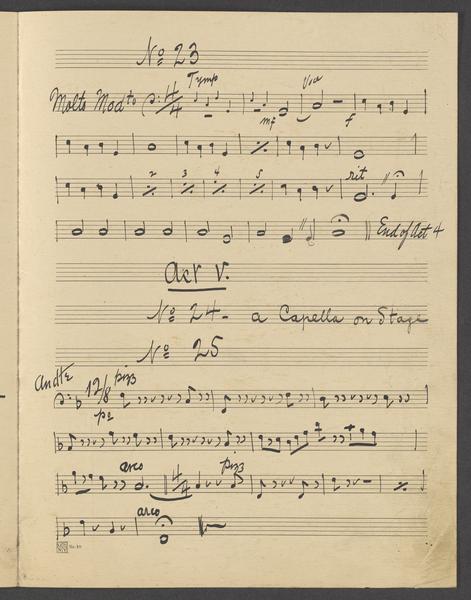 No 23
Molto Modto 4/4 Tymp Voce
mf f
2 3 4 5 rit
End of Act 4
Act V.
No 24 - a Capella on Stage
No 25
Andte 12/8 pizz
po
arco 4/4 pizz
arco